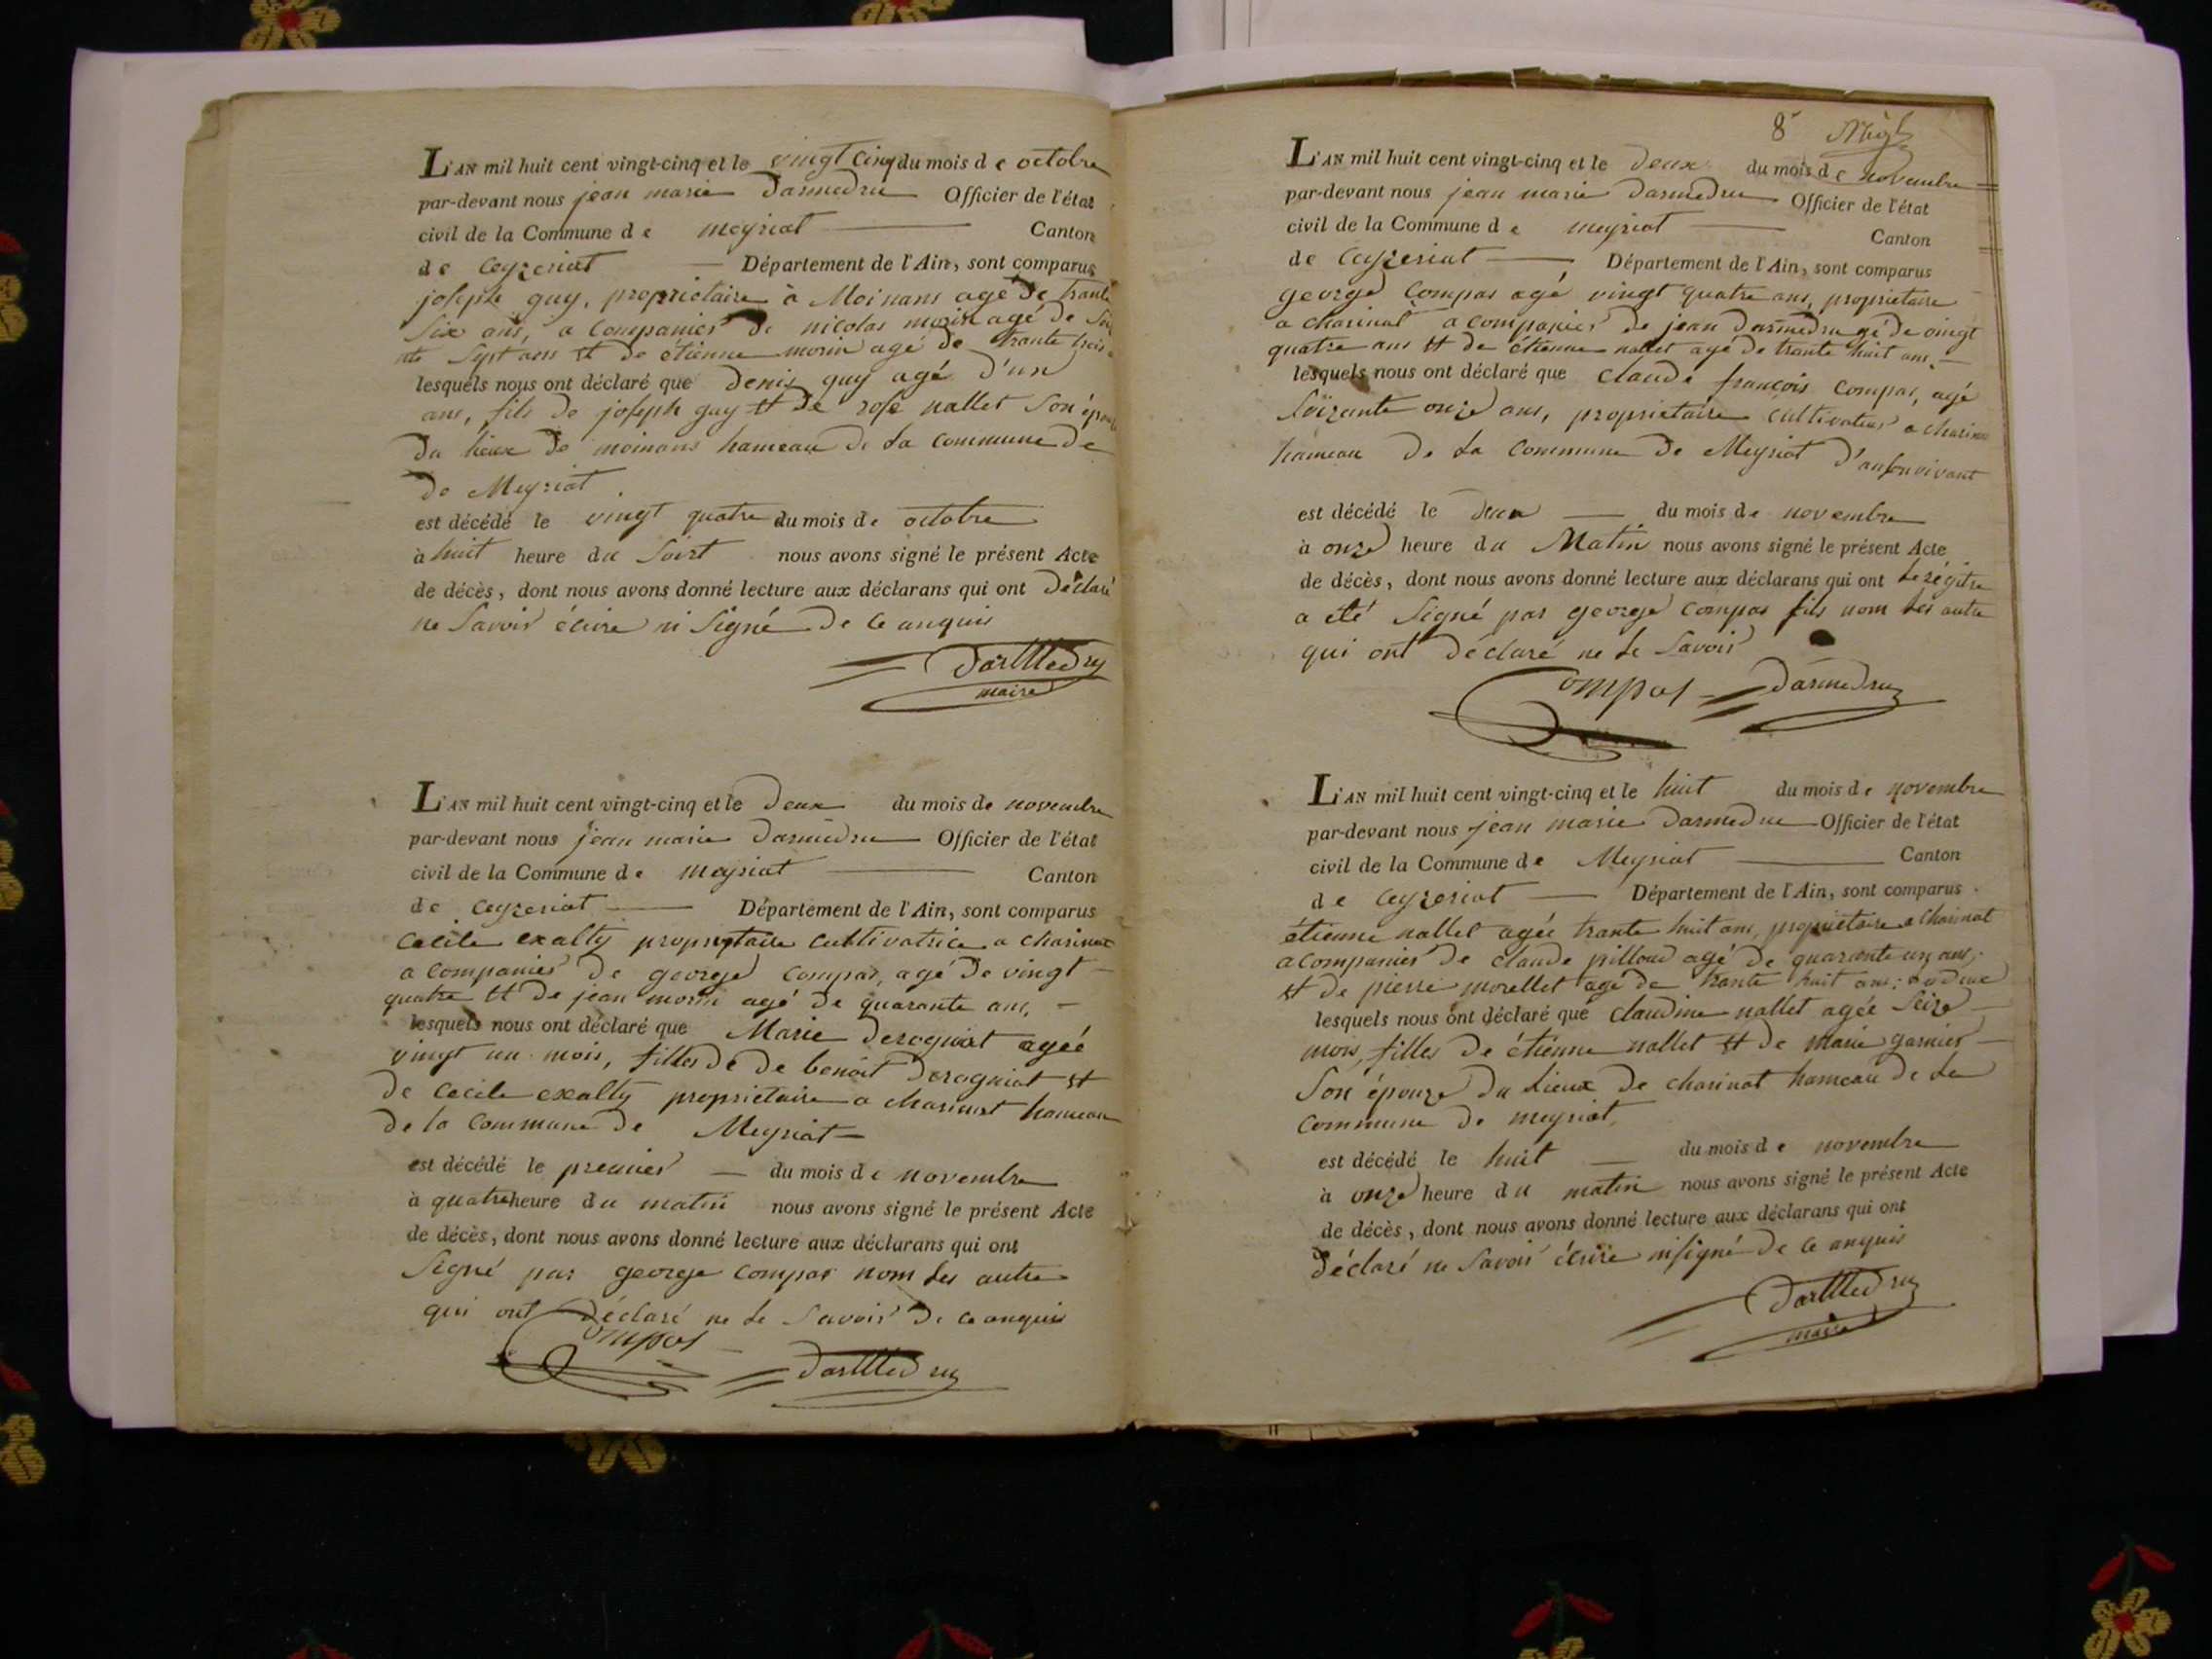 L'AN mil huit cent vingt-cinq et le vingt cinq du mois de octobre
par-devant nous jean marie Darmedru Officier de l'état
civil de la Commune de meyriat Canton
de ceyzeriat Département de l'Ain, sont comparus
joseph guy, propriétaire à Moinans agé de trante
six ans, a companies de nicolas morin agé de
sept ans et de étienne morin agé de trante trois
lesquels nous ont déclaré que denis guy agé d'un
ans, fils de joseph guy et de rose nallet son épouse
du lieux de moinans hameau de la commune de
de Meyriat
est décédé le vingt quatre du mois de octobre
à huit heure du soirt nous avons signé le présent Acte
de décès, dont nous avons donné lecture aux déclarans qui ont déclaré
ne savoir écrire ni signé de ce anquis
Darmedru
maire
L'AN mil huit cent vingt-cinq et le deux du mois de novembre
par-devant nous jean marie Darmedru Officier de l'état
civil de la Commune de meyriat Canton
de ceyzeriat Département de l'Ain, sont comparus
cecile exalty propriétaire cultivatrice a charinat
a companies de george compas, agé de vingt
quatre et de jean morin agé de quarante ans,
lesquels nous ont déclaré que Marie derogniat agée
vingt un mois, filles de de benoit derogniat et
de cecile exalty propriétaire a charinat hameau
de la commune de Meyriat
est décédé le premier du mois de novembre
à quatre heure du matin nous avons signé le présent Acte
de décès, dont nous avons donné lecture aux déclarans qui ont
signé par george compas nom les autre
qui ont déclaré ne le savoir de ce anquis
Compas Darmedru
8
L'AN mil huit cent vingt-cinq et le deux du mois de novembre
par-devant nous jean marie Darmedru Officier de l'état
civil de la Commune de meyriat Canton
de ceyzeriat Département de l'Ain, sont comparus
george compas agé vingt quatre ans, propriétaire
a charinat a companies de jean darmedru gé de vingt
quatre ans et de étienne nallet agé de trante huit ans,
lesquels nous ont déclaré que claude françois compas, agé
soizante onze ans, propriétaire cultivateur a charinat
hameau de la commune de Meyriat d'ansonvivant
est décédé le deux du mois de novembre
à onze heure du Matin nous avons signé le présent Acte
de décès, dont nous avons donné lecture aux déclarans qui ont le régitre
a été signé par george compas fils nom les autre
qui ont déclaré ne le savoir
Compas Darmedru
L'AN mil huit cent vingt-cinq et le huit du mois de novembre
par-devant nous jean marie Darmedru Officier de l'état
civil de la Commune de Meyriat Canton
de ceyzeriat Département de l'Ain, sont comparus
étienne nallet agée trante huit ans, propriétaire a charinat
acompanies de claude pilloud agé de quarante un ans,
et de pierre morellet agé de trante huit ans;
lesquels nous ont déclaré que claudine nallet agée seize
mois, filles de étienne nallet et de marie garnier
son épouze du lieux de charinat hameau de la
commune de meyriat,
est décédé le huit du mois de novembre
à onze heure du matin nous avons signé le présent Acte
de décès, dont nous avons donné lecture aux déclarans qui ont
déclaré ne savoir écrire ni signé de ce anquis
Darmedru
maire